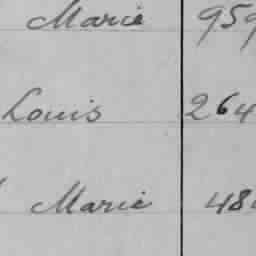 Marie 959
Louis 264
Marie 48